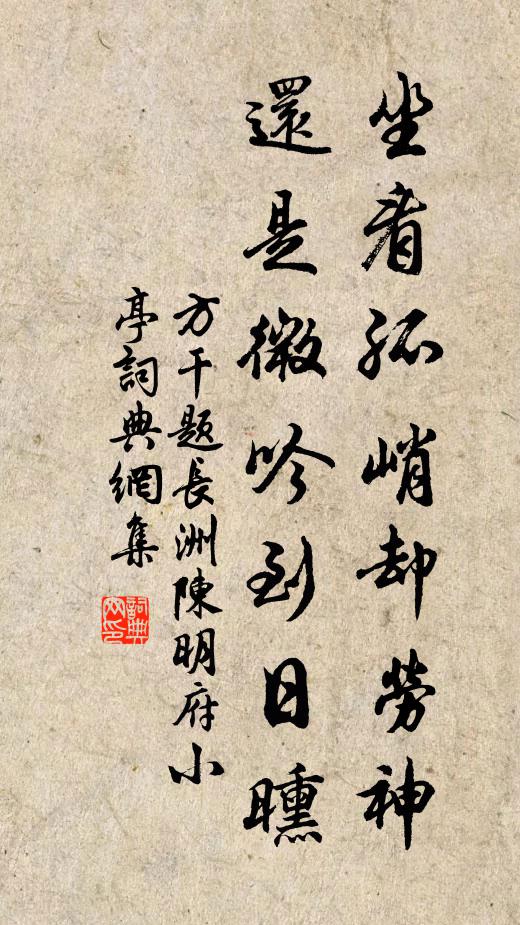 坐看孤峭却勞神
還是微吟到日曛
方干題長洲陳明府小
亭詞典網集
詞典
网印